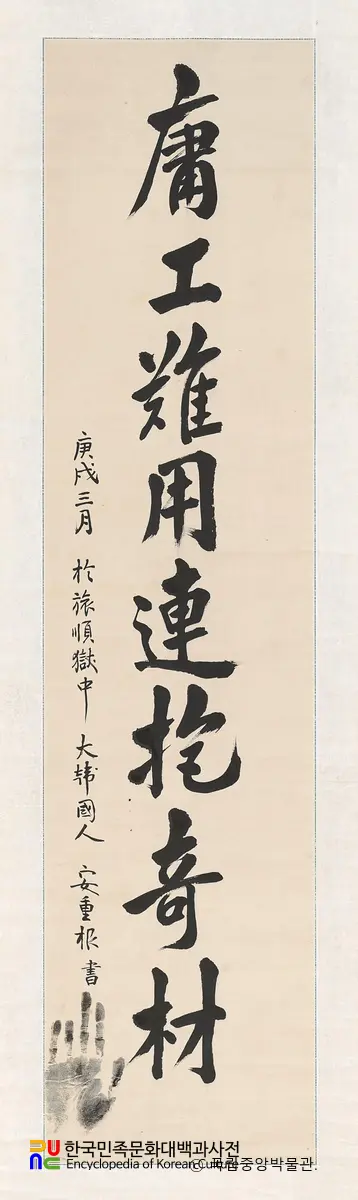 庸工難用連抱奇材
庚戌三月 於旅順獄中 大韓國人 安重根 書
한국민족문화대백과사전
Encyclopedia of Korean Culture
© 국립중앙박물관.